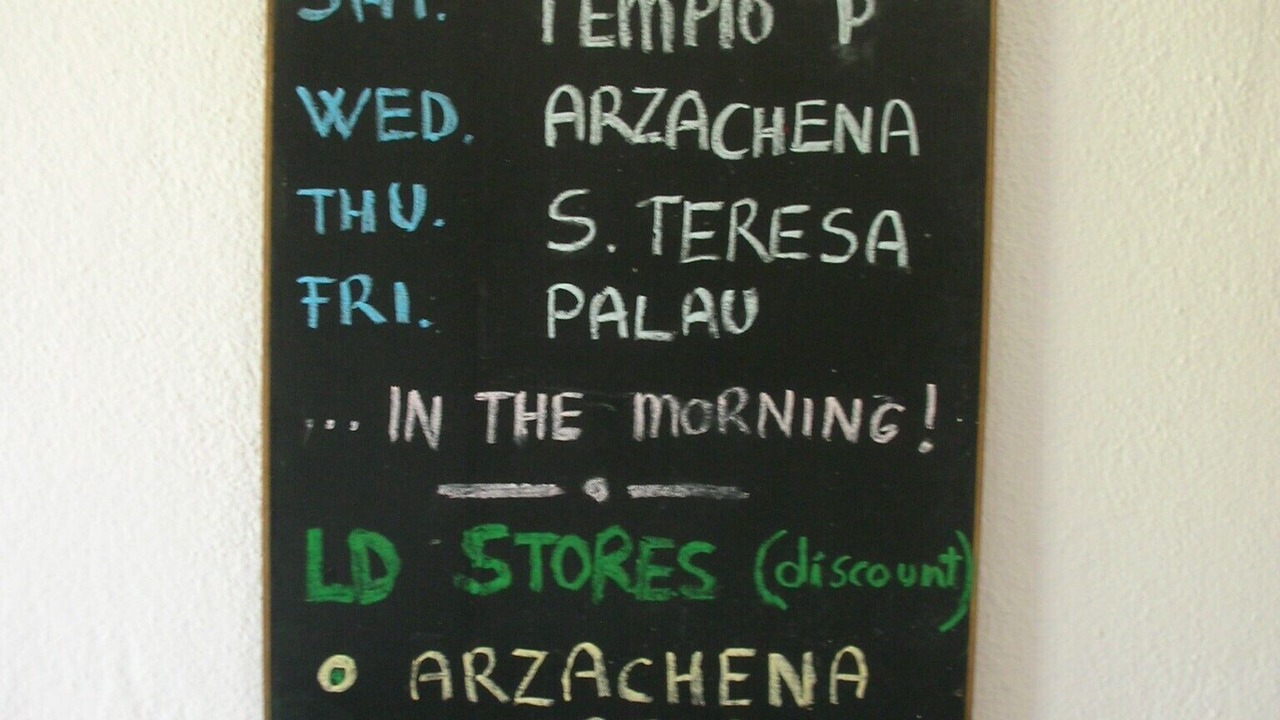 SAT. TEMPIO P
WED. ARZACHENA
THU. S. TERESA
FRI. PALAU
... IN THE MORNING!
LD STORES (discount)
ARZACHENA